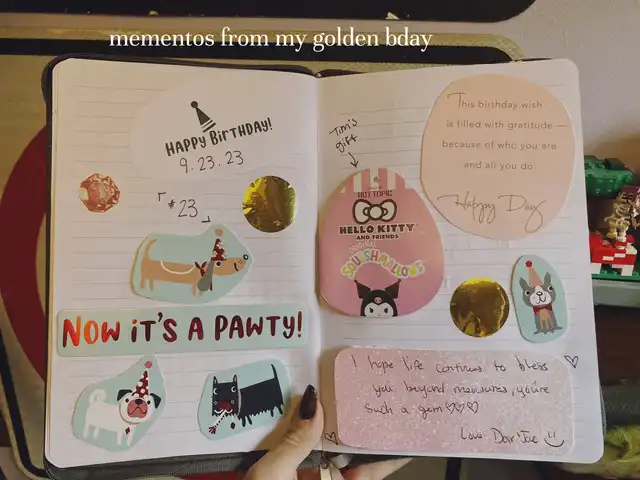 mementos from my golden bday
HAPPY BIRTHDAY!
9.23.23
#23
NOW iT'S A PAWTY!
Tim's
gift
HOT TOPIC
HELLO KITTY
AND FRIENDS
ORIGINAL
SQUISHMALLOWS
This birthday wish
is filled with gratitude—
because of who you are
and all you do.
Happy Day
I hope life continues to bless
you beyond measures, you're
such a gem ♡♡♡
Love Dar'Tae